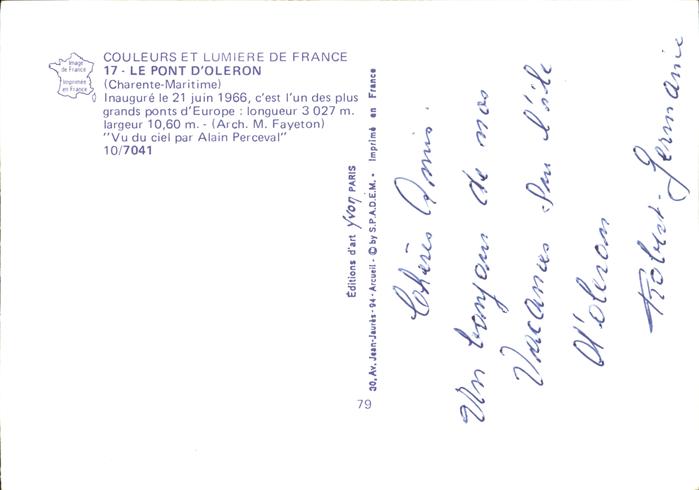 Image
de France
Imprimée
en France
COULEURS ET LUMIERE DE FRANCE
17 - LE PONT D'OLERON
(Charente-Maritime)
Inauguré le 21 juin 1966, c'est l'un des plus
grands ponts d'Europe : longueur 3 027 m.
largeur 10,60 m. - (Arch. M. Fayeton)
"Vu du ciel par Alain Perceval"
10/7041
Editions d'art yvon PARIS
30, Av. Jean-Jaurès - 94 - Arcueil - © by S.P.A.D.E.M. - Imprimé en France
79
Chères Amis.
Un bonjour de nos
Vacances sur l'île
d'oleron
Robert. Germanie